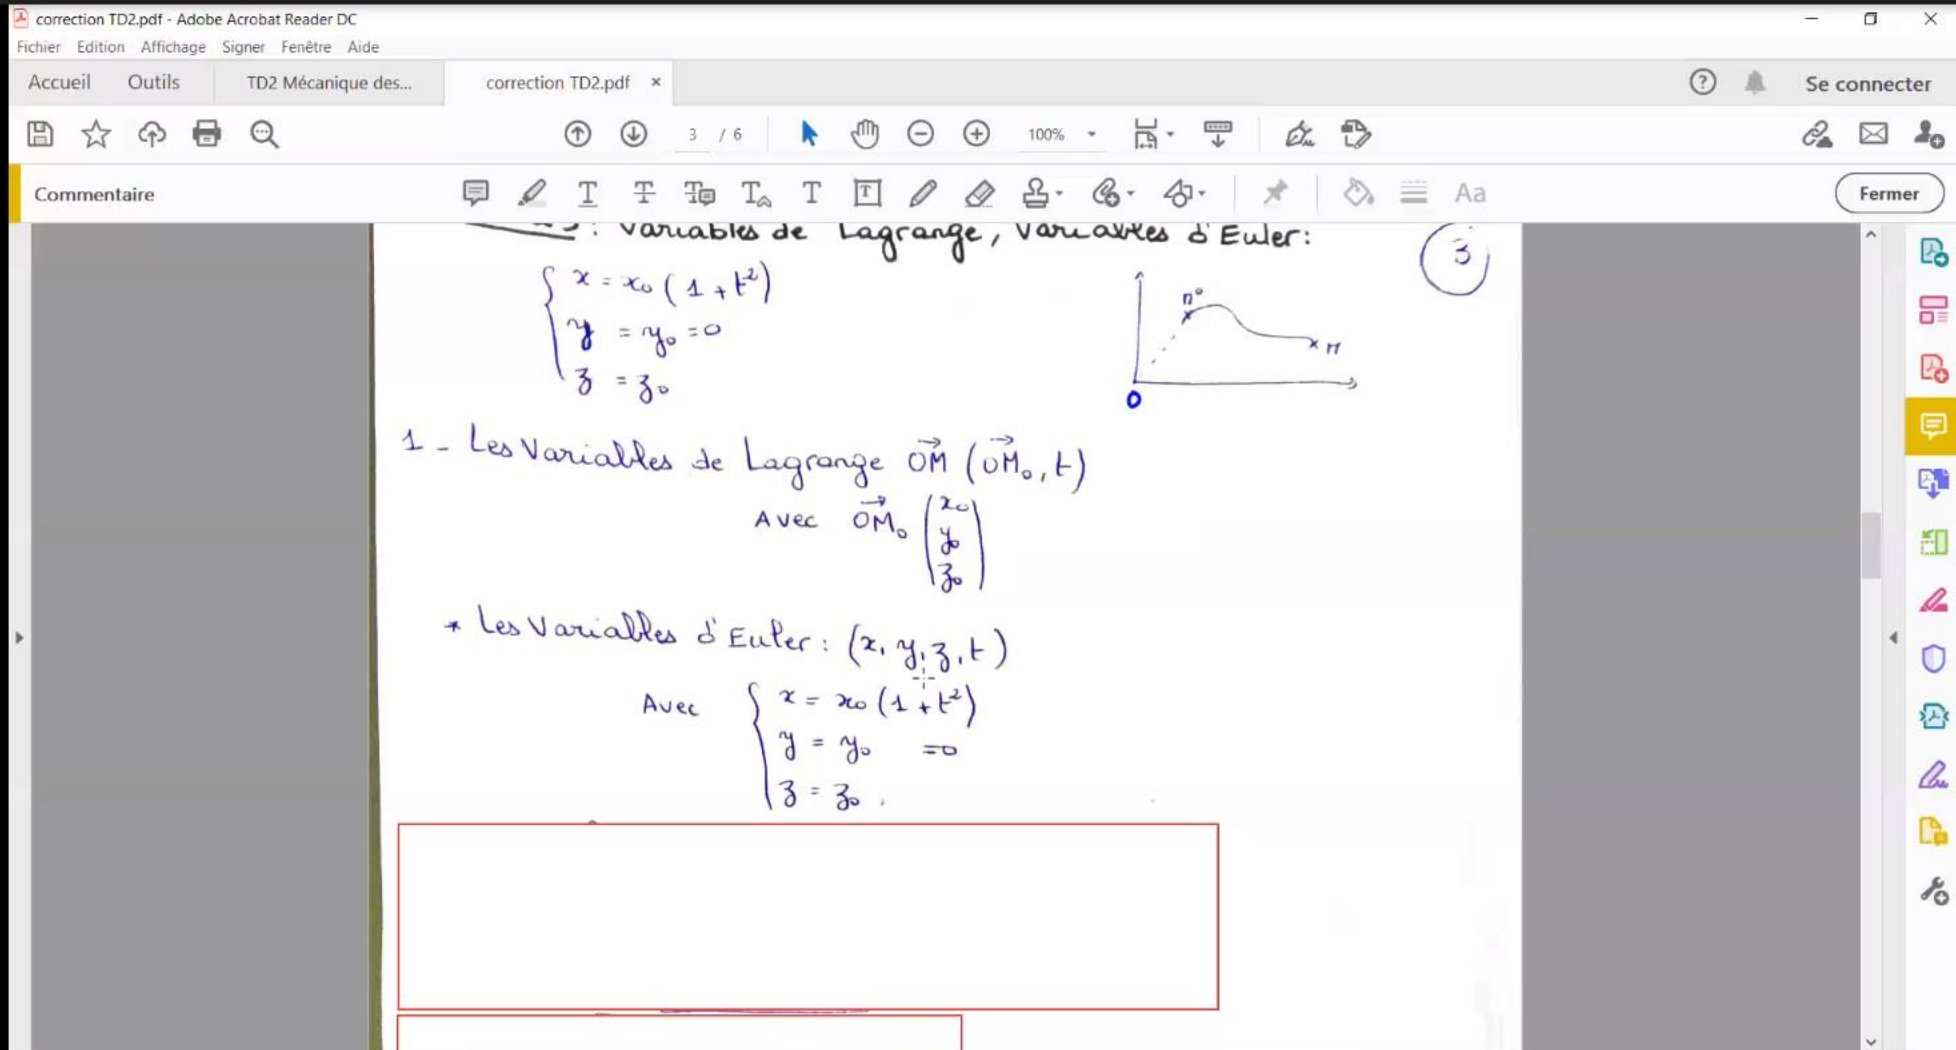 correction TD2.pdf - Adobe Acrobat Reader DC
Fichier Edition Affichage Signer Fenêtre Aide
Accueil Outils TD2 Mécanique des... correction TD2.pdf × Se connecter
3 / 6 100%
Commentaire Fermer
: Variables de Lagrange, Variables d'Euler:
3
x = x₀ (1 + t²)
y = y₀ = 0
z = z₀
M
O
1 - Les Variables de Lagrange OM (OM₀, t)
Avec OM₀ (x₀
y₀
z₀)
* Les Variables d'Euler : (x, y, z, t)
Avec x = x₀ (1 + t²)
y = y₀ = 0
z = z₀